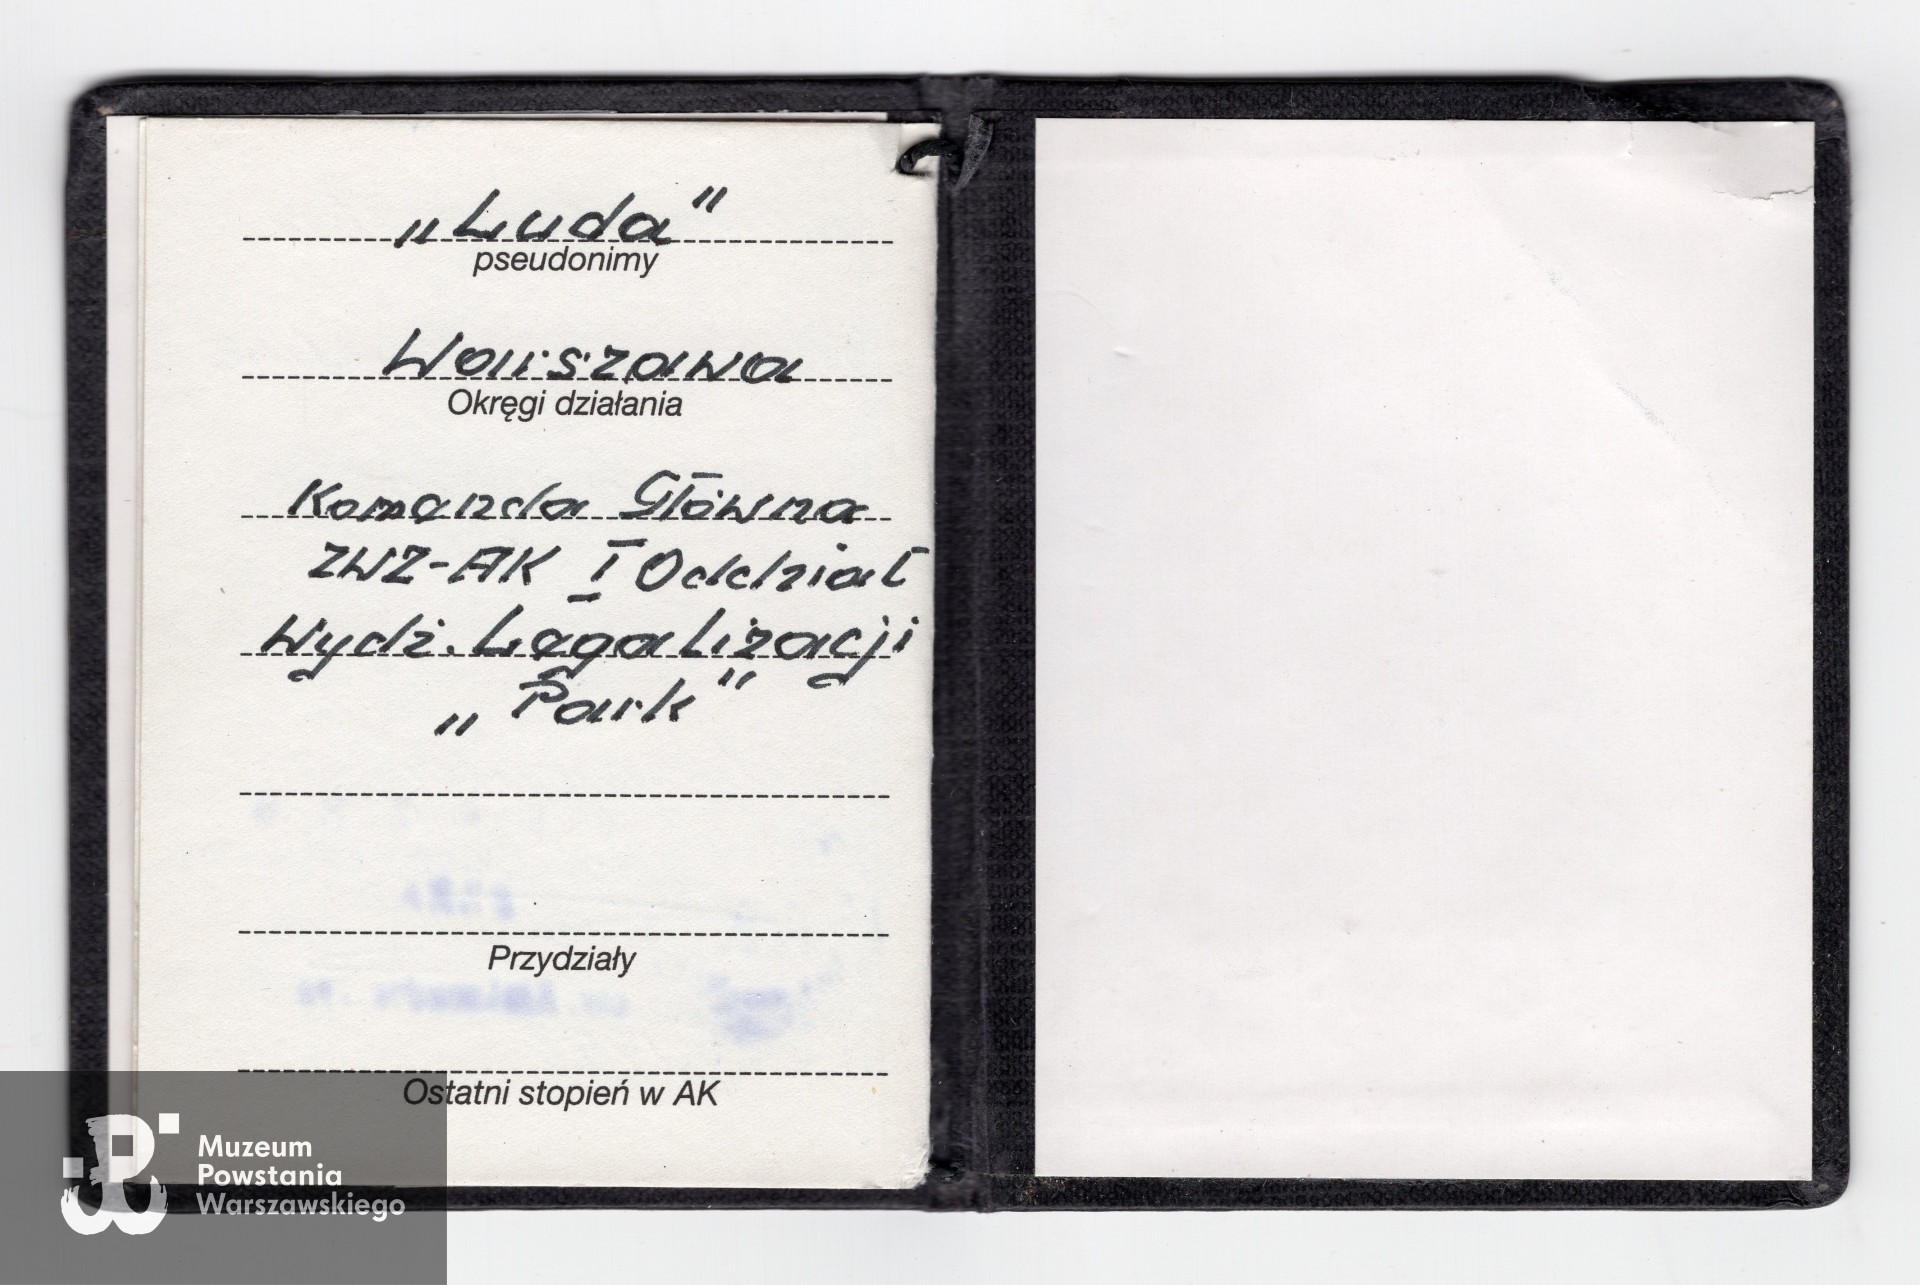 „Luda”
pseudonimy
Warszawa
Okręgi działania
Komenda Główna
ZWZ-AK I Oddział
Wydz. Legalizacji
„Park”
Przydziały
Ostatni stopień w AK
Muzeum
Powstania
Warszawskiego